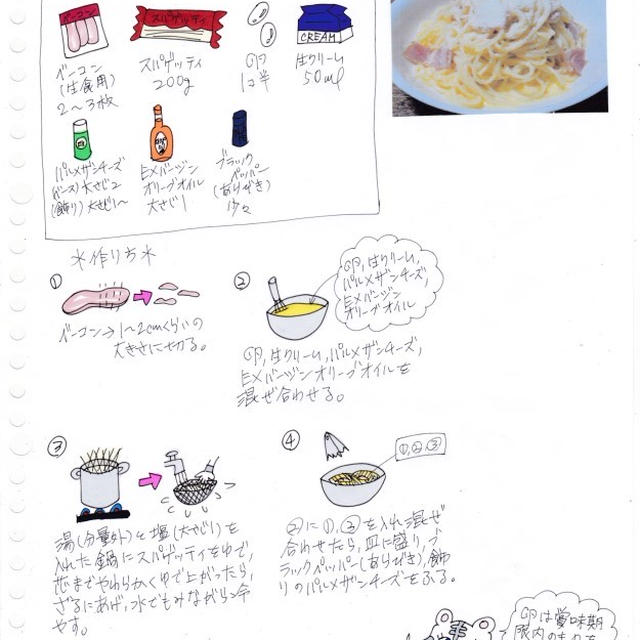 ベーコン
スパゲッティ
CREAM
ベーコン
(生食用)
2〜3枚
スパゲッティ
200g
卵
1ヶ半
生クリーム
50ml
パルメザンチーズ
(ソース)大さじ2
(飾り)大さじ1〜
EXバージン
オリーブオイル
大さじ1
ブラック
ペッパー
(あらびき)
少々
*作り方*
①
ベーコン→1〜2cmくらいの
大きさに切る。
②
卵,生クリーム,
パルメザンチーズ,
EXバージン
オリーブオイル
卵,生クリーム,パルメザンチーズ,
EXバージンオリーブオイルを
混ぜ合わせる。
③
湯(分量外)と塩(大さじ1)を
入れた鍋にスパゲッティをゆで,
芯までやわらかくゆで上がったら,
ざるにあげ,水でもみながら冷
やす。
④
①,②,③
②に①,③を入れ混ぜ
合わせたら,皿に盛り,ブ
ラックペッパー(あらびき),飾
りのパルメザンチーズをふる。
卵は賞味期
限内のものを